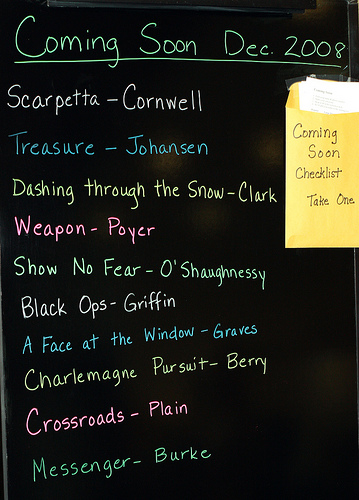 Coming Soon Dec. 2008
Scarpetta - Cornwell
Treasure - Johansen
Dashing through the Snow - Clark
Weapon - Poyer
Show No Fear - O'Shaughnessy
Black Ops - Griffin
A Face at the Window - Graves
Charlemagne Pursuit - Berry
Crossroads - Plain
Messenger - Burke
Coming
Soon
Checklist
Take One